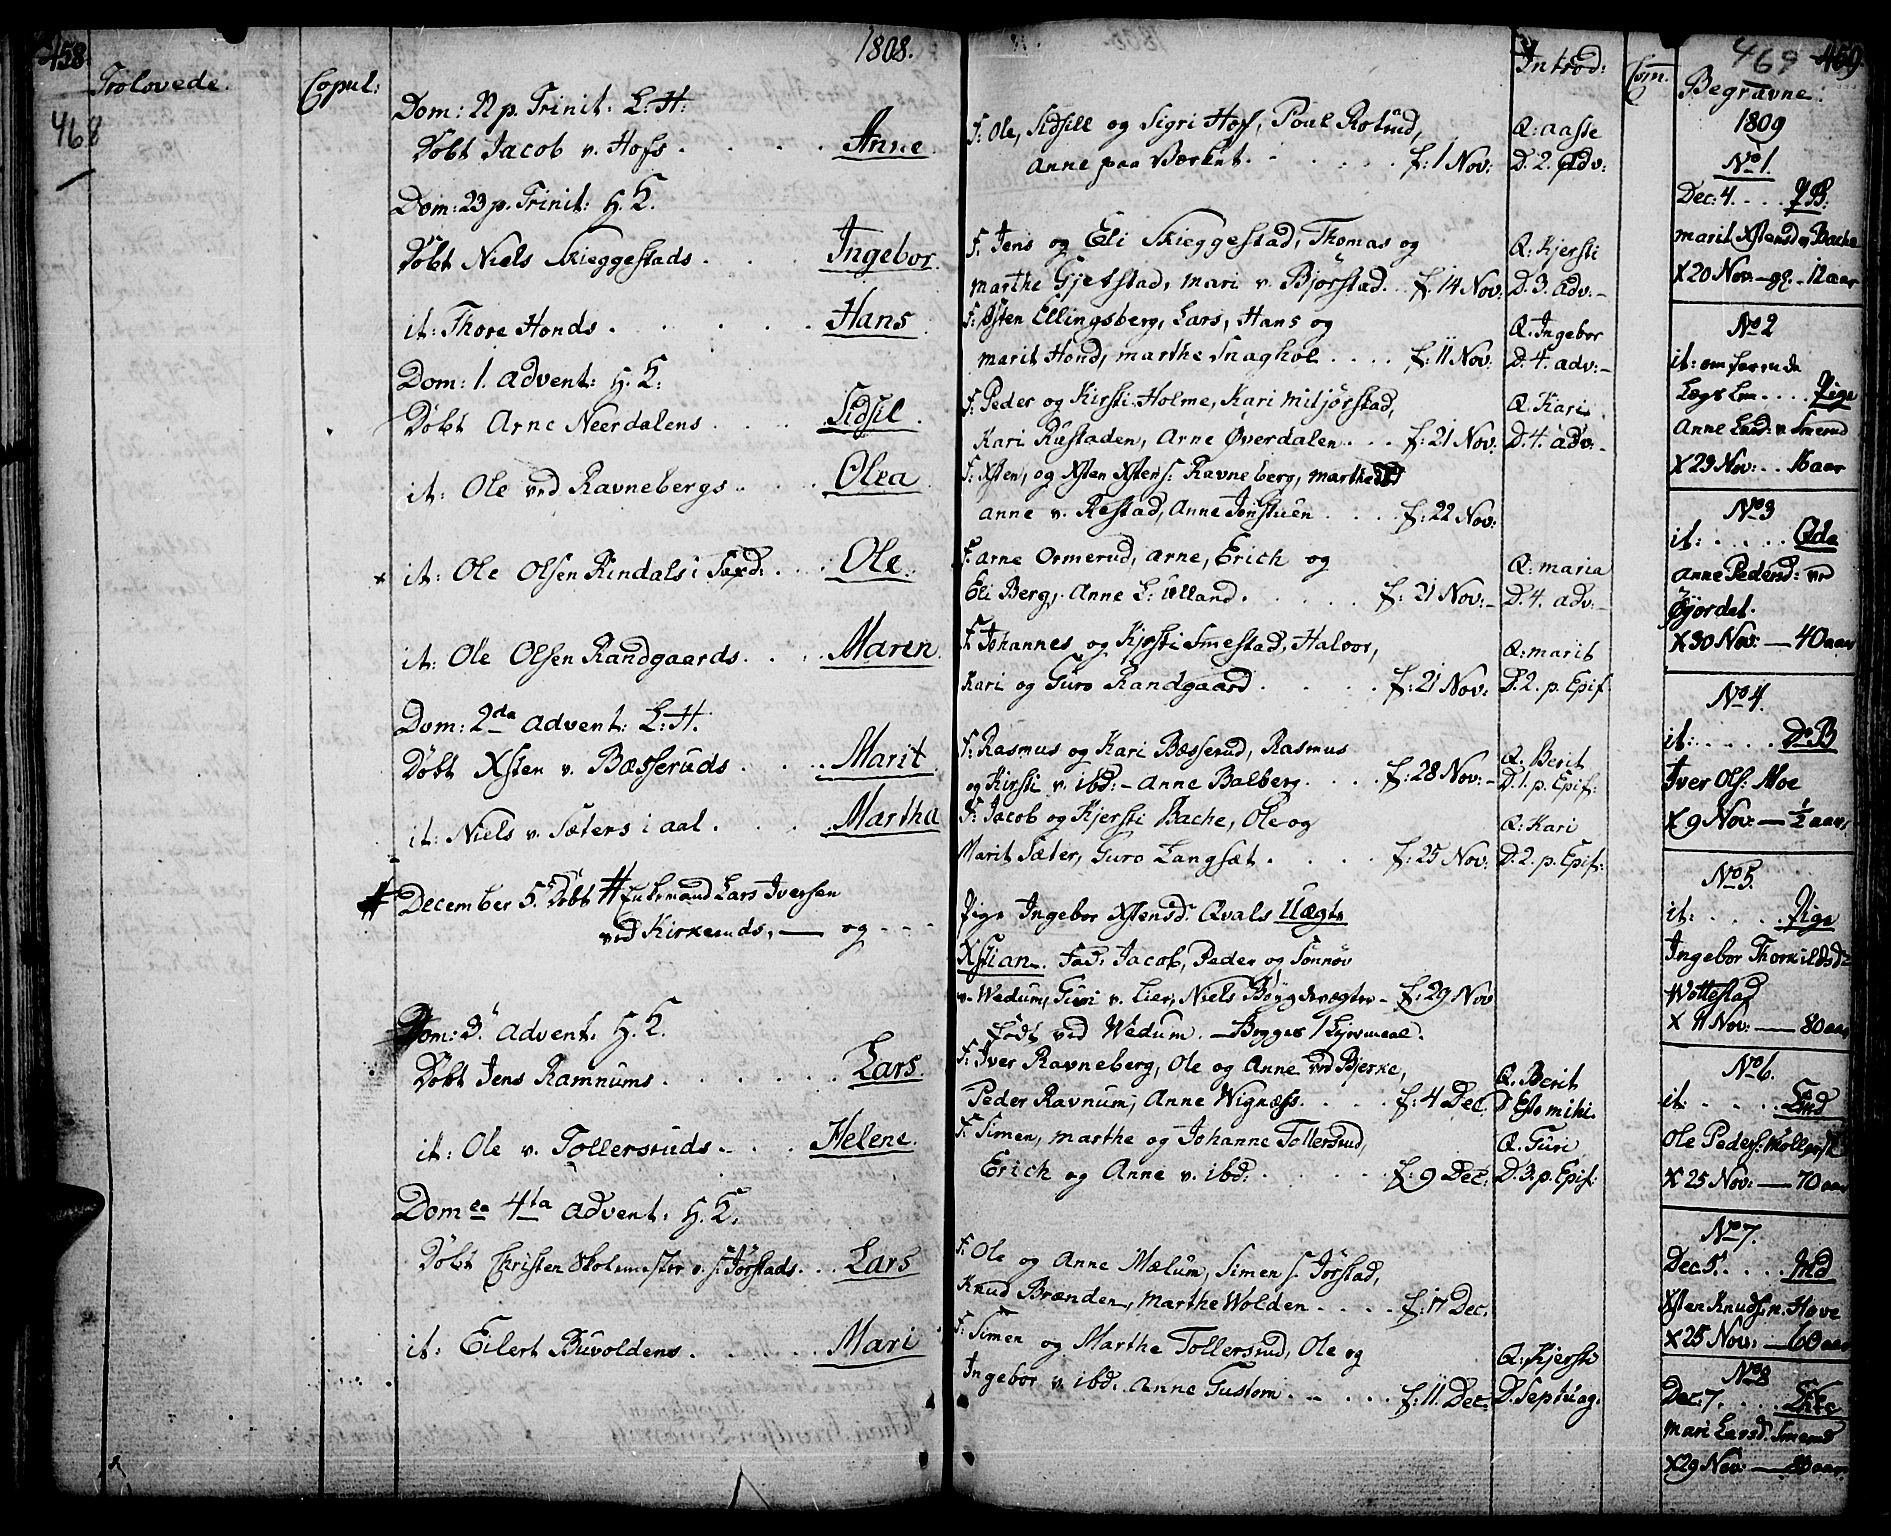 458
1808.
469 459
Trolovede.
Copul:
Introd:
Com.
Begravne:
468
Dom: 22 p. Trinit: L.H:
Døbt Jacob v. Hofs . . . . . Anne
F: Ole, Sidsill og Sigri Hof, Poul Rotrud,
Anne paa Værket . . . . . f: 1 Nov:
Q: Aasse
D. 2. Adv:
Dom: 23 p. Trinit: H.K.
Døbt Niels Skieggestads . . . . Ingebor
F. Jens og Eli Skieggestad, Thomas og
Marthe Gjetstad, Mari v. Bjørstad. . f. 14 Nov:
Q: Kjersti
D. 3. Adv:-
it: Thore Honds . . . . . Hans
F: Østen Ellingsberg, Lars, Hans og
Marit Hond, Marthe Snaghol . . . . f: 11 Nov:
Q. Ingebor
D. 4. adv:-
Dom: 1. Advent: H.K:
Døbt Arne Neerdalens . . . . Sidsil.
F. Peder og Kirsti Holme, Kari Miljørstad,
Kari Rustaden, Arne Øverdalen . . . f: 21 Nov:
Q. Kari
D. 4. adv:-
it: Ole ved Ravnebergs . . . Olea
F. Xsten, og Xsten Xstens: Ravneberg, Marthe
Anne v. Røstad, Anne Jonstuen . . . . f: 22 Nov:
it: Ole Olsen Kindals i . . . . Ole.
F. Arne Ormerud, Arne, Erich og
Eli Berg, Anne L: Ulland. . . . . . f: 21 Nov:-
Q: Maria
D. 4. adv:-
it: Ole Olsen Randgaards . . . . Maren
F. Johannes og Kjersti Smestad, Halvor,
Kari og Guro Randgaard . . . . . f: 21 Nov:
Q: Marit
D. 2. p. Epif.
Dom: 2da Advent: L:H:
Døbt Xsten v. Bæsseruds . . . . Marit
F. Rasmus og Kari Bæsserud, Rasmus
og Kirsti v. ibd:- Anne Balberg . . . . f: 28 Nov:-
Q. Berit
D. 1. p. Epif:
it: Niels v. Sæters i aal . . . . Martha
F: Jacob og Kjersti Bache, Ole og
Marit Sæter, Guro Langsæt . . . . f: 25 Nov.
Q: Kari
D. 2. p. Epif:
December 5. Døbt # Lars Iversen
ved Kirkeruds, — og - - -
Pige Ingebor Xstensd: Qvals Uægte
Xstian. Fad: Jacob, Peder og Sønnøv
v. Wedum, Guri v. Lier, Niels - f: 29 Nov
Født ved Wedum.
Dom: 3. Advent. H.K.
Døbt Jens Ramnums . . . . . . Lars
F. Iver Ravneberg, Ole og Anne ved Bjerke,
Peder Ravnum, Anne Wignæss . . . . f: 4 Dec.
Q. Berit
D Esto mihi.
it: Ole v. Tollersruds . . . . Helene.
F. Simen, Marthe og Johanne Tollersrud,
Erich og Anne v. ibd. . . . . . f: 9 Dec:
Q. Guri
D. 3. p. Epif:
Dom ca 4ta Advent. H.K.
Døbt Christen v. Jørstads . . Lars
F. Ole og Anne Mælum, Simen Jørstad,
Knud Brænden, Marthe Wolden . . . . f: 17 Dec.
it: Eilert Buvoldens . . . . . Mari
F: Simen og Marthe Tollersrud, Ole og
Ingebor v. ibd: Anne Gustom . . . . f: 11. Dec:
Q: Kjersti
D. Septuag:
1809
No 1.
Dec: 4. . . .
Marit Xstensd: v. Bache
X 20 Nov — 12 aar
No 2
it:
. . . . Pige
Anne v. Smerud
X 23 Nov: . . 16 aar
No 3
it: . . . . .
Anne Pedersd: ved
X 30 Nov: — 40 aar
No 4.
it: . . . . . B
Iver Ols: Moe
X 9 Nov: — ½ aar
No 5.
it: . . . . Pige
Ingebor Thorkildsd:
Wottestad
X 11 Nov: — 80 aar
No 6.
it: . . . .
Ole Peders:
X 25 Nov: — 70 aar
No 7.
Dec 5. . . . .
Xsten Knuds. n. Hove
X 25 Nov: — 60 aar
No 8
Dec: 7. . . . Enke
Mari Larsd. Smerud
X 29 Nov: — aar